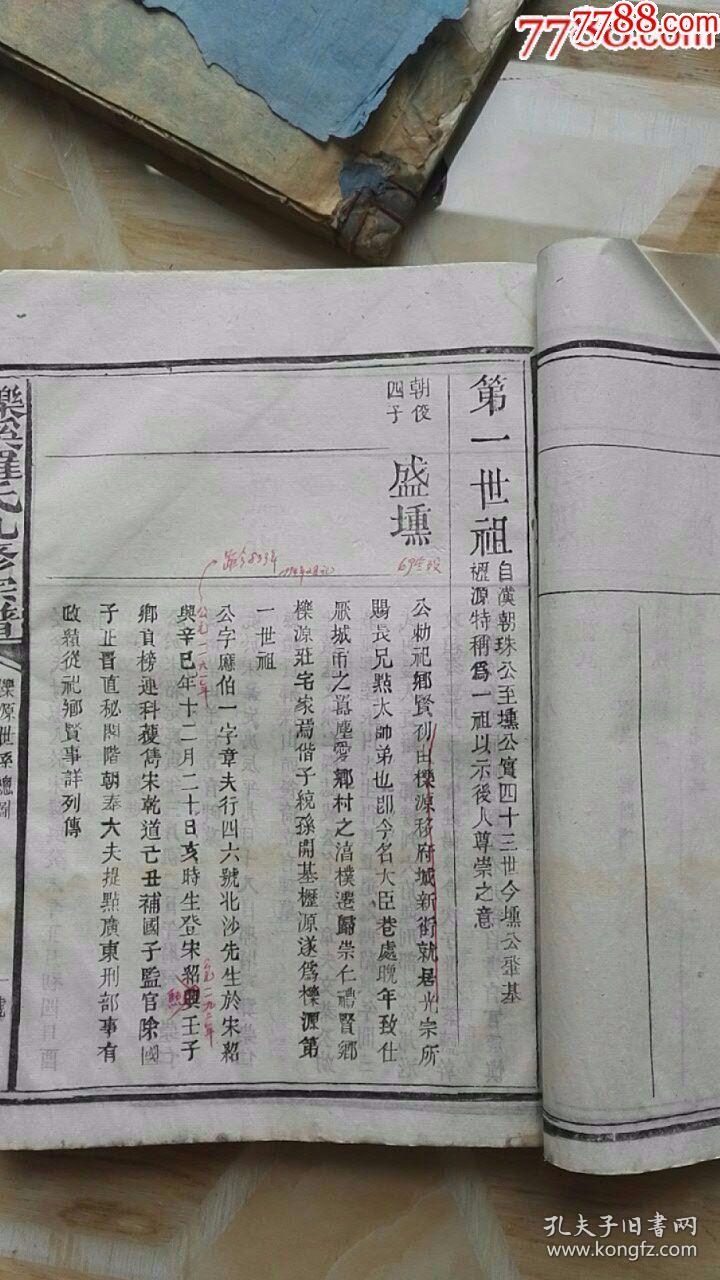 7788.com
7788.com
第一世祖
自漢朝珠公至壎公實四十三世今壎公肇基
櫪源特稱爲一祖以示後人尊崇之意
朝俊
四子
盛壎
公勅祀鄉賢列由櫟源移府城新街就居光宗所
賜長兄點太師弟也即今名大臣巷處晚年致仕
厭城市之囂塵愛鄉村之淳樸遷歸崇仁禮賢鄉
櫟源莊宅家焉偕子統孫開基櫪源遂爲櫟源第
一世祖
公字應伯一字章夫行四六號北沙先生於宋紹
興辛巳年十二月二十日亥時生登宋紹興壬子
鄉貢榜連科蔆雋宋乾道己丑補國子監官除國
子正晋直秘閣階朝奉大夫提點廣東刑部事有
政績從祀鄉賢事詳列傳
距今833年
69世段
熙
櫟溪羅氏九修宗譜
櫟源世系總圖
孔夫子旧书网
www.kongfz.com